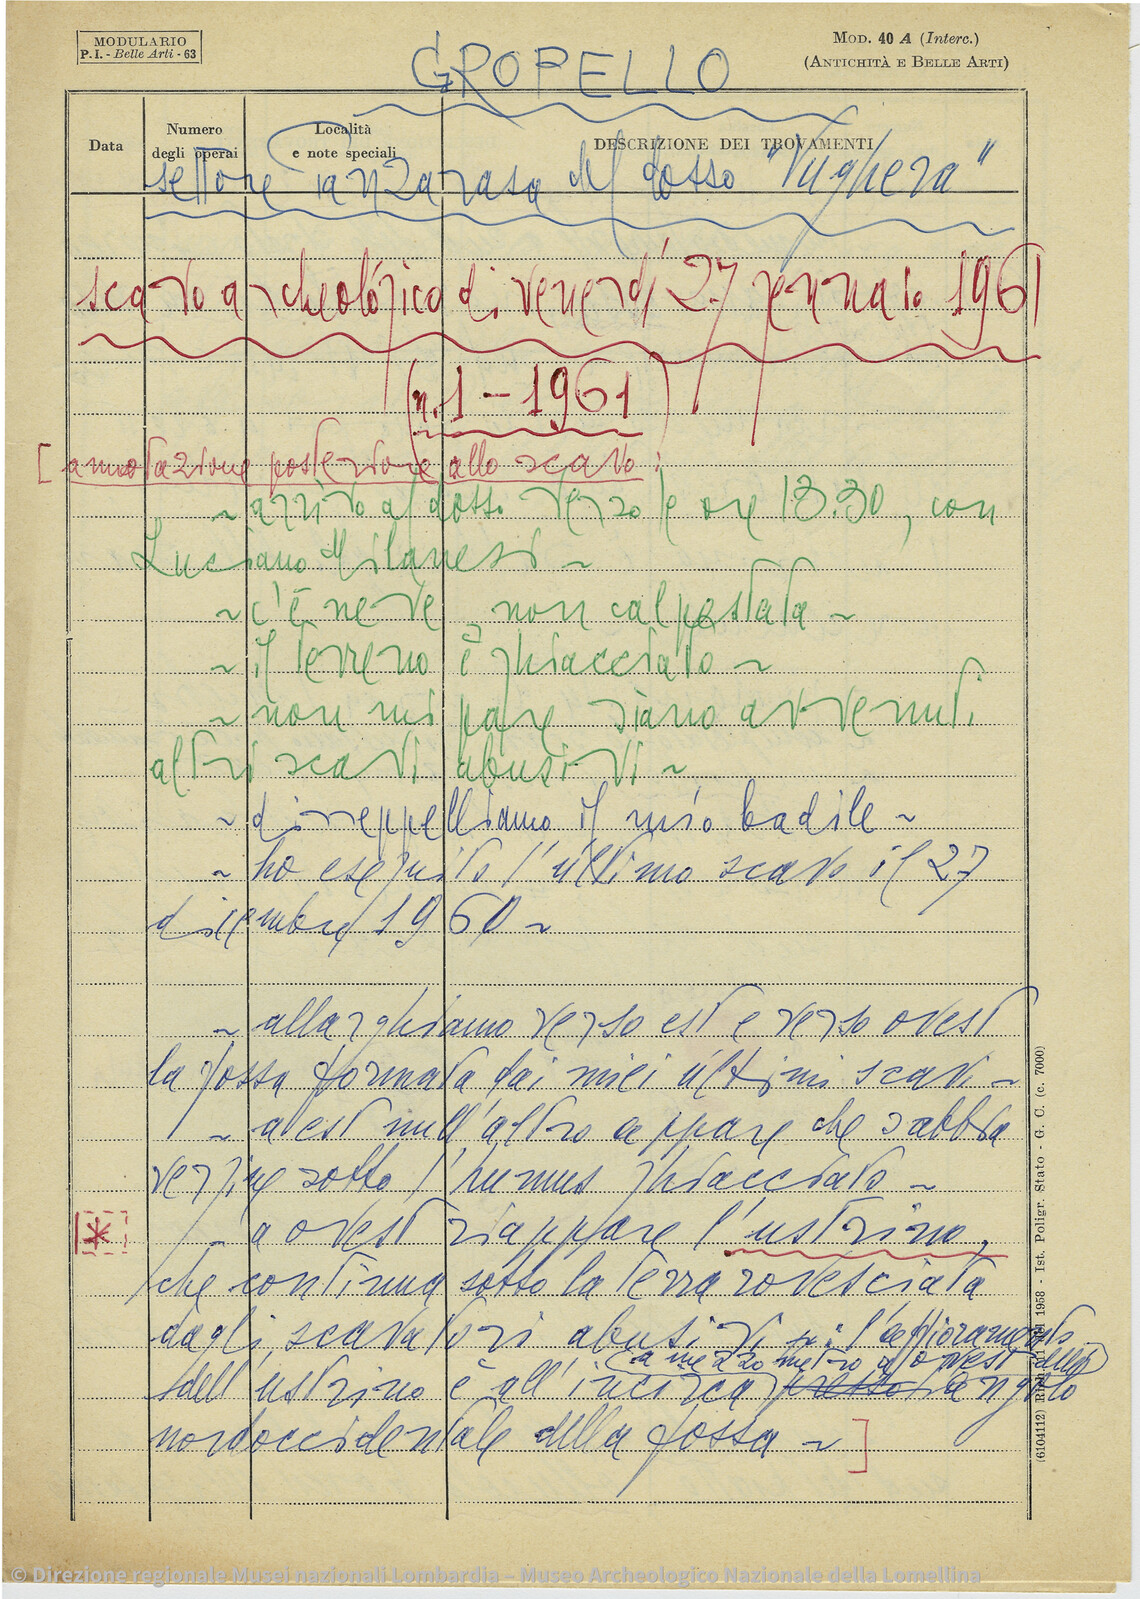 MODULARIO
P. I. - Belle Arti - 63
MOD. 40 A (Interc.)
(ANTICHITÀ E BELLE ARTI)
GROPELLO
Data
Numero degli operai
Località e note speciali
DESCRIZIONE DEI TROVAMENTI
settore Panzarasa del dosso "Vughera"
scavo archeológico di venerdí 27 gennaio 1961
(n. 1 - 1961)
[annotazione posteriore allo scavo:
~ arrivo al dosso verso le ore 13.30, con
Luciano Milanesi ~
~ c'è neve, non calpestata ~
~ il terreno è ghiacciato ~
~ non mi pare siano avvenuti
altri scavi abusivi ~
~ disseppelliamo il mio badile ~
~ ho eseguito l'último scavo il 27
dicembre 1960 ~
~ allarghiamo verso est e verso ovest
la fossa formata dai miei últimi scavi ~
~ a est null'altro appare che sabbia
vergine sotto l'humus ghiacciato ~
* ~ a ovest riappare l'ustrino,
che continua sotto la terra rovesciata
dagli scavatori abusivi : l'affioramento
dell'ustrino è all'incirca presso a mezzo metro a ovest dell' angolo
nordoccidentale della fossa ~ ]
(6104112) Rich. 1958 - Ist. Poligr. Stato - G. C. (c. 7000)
© Direzione regionale Musei nazionali Lombardia – Museo Archeologico Nazionale della Lomellina